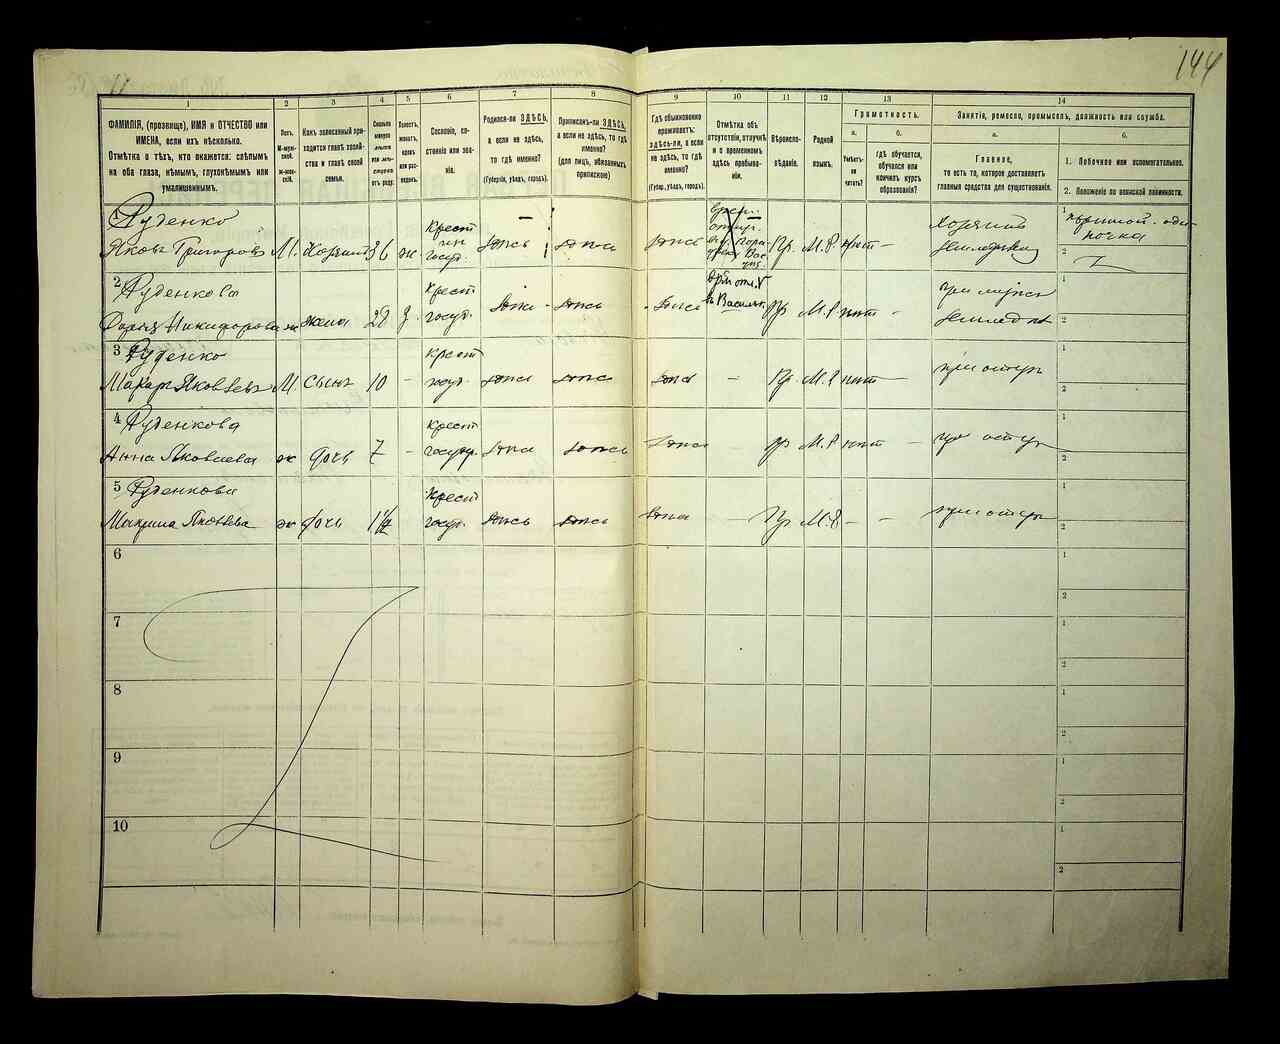 144
1
2
3
4
5
6
7
8
9
10
11
12
13
14
ФАМИЛІЯ, (прозвище), ИМЯ и ОТЧЕСТВО или
ИМЕНА, если ихъ нѣсколько.
Отмѣтка о тѣхъ, кто окажется: слѣпымъ
на оба глаза, нѣмымъ, глухонѣмымъ или
умалишеннымъ.
Полъ.
М-муж-
ской.
Ж-жен-
скій.
Какъ записанный при-
ходится главѣ хозяй-
ства и главѣ своей
семьи.
Сколько
минуло
лѣтъ
или мѣ-
сяцевъ
отъ роду.
Холостъ,
женатъ,
вдовъ
или раз-
веденъ.
Сословіе, со-
стояніе или зва-
ніе.
Родился-ли ЗДѢСЬ,
а если не здѣсь,
то гдѣ именно?
(Губернія, уѣздъ, городъ).
Приписанъ-ли ЗДѢСЬ,
а если не здѣсь, то гдѣ
именно?
(для лицъ, обязанныхъ
припискою)
Гдѣ обыкновенно
проживаетъ:
здѣсь-ли, а если
не здѣсь, то гдѣ
именно?
(Губер., уѣздъ, городъ).
Отмѣтка объ
отсутствіи, отлучкѣ
и о временномъ
здѣсь пребыва-
ніи.
Вѣроиспо-
вѣданіе.
Родной
языкъ.
Грамотность.
а.
Умѣетъ-
ли
читать?
б.
гдѣ обучается,
обучался или
кончилъ курсъ
образованія?
Занятіе, ремесло, промыселъ, должность или служба.
а.
Главное,
то есть то, которое доставляетъ
главныя средства для существованія.
б.
1. Побочное или вспомогательное.
2. Положеніе по воинской повинности.
1 Руденко
Яковъ Григоровъ М. Хозяинъ 36 ж. Крест. госуд. здѣсь здѣсь здѣсь Пр. М.Р. нѣтъ - Хозяинъ
2 Руденкова
Дарья Никифорова ж жена 28 з. Крест. госуд. здѣсь - здѣсь здѣсь Пр М.Р. нѣтъ - при мужѣ
3 Руденко
Макаръ Яковлевъ М сынъ 10 - Крест госуд. здѣсь здѣсь здѣсь - Пр. М.Р нѣтъ при отцѣ
4 Руденкова
Анна Яковлева ж дочь 7 - Крест госуд. здѣсь здѣсь здѣсь пр М.Р нѣтъ - при отцѣ
5 Руденкова
Яковлева ж дочь 1 1/2 Крест госуд. здѣсь здѣсь здѣсь Пр М.Р - - при отцѣ
6
7
8
9
10